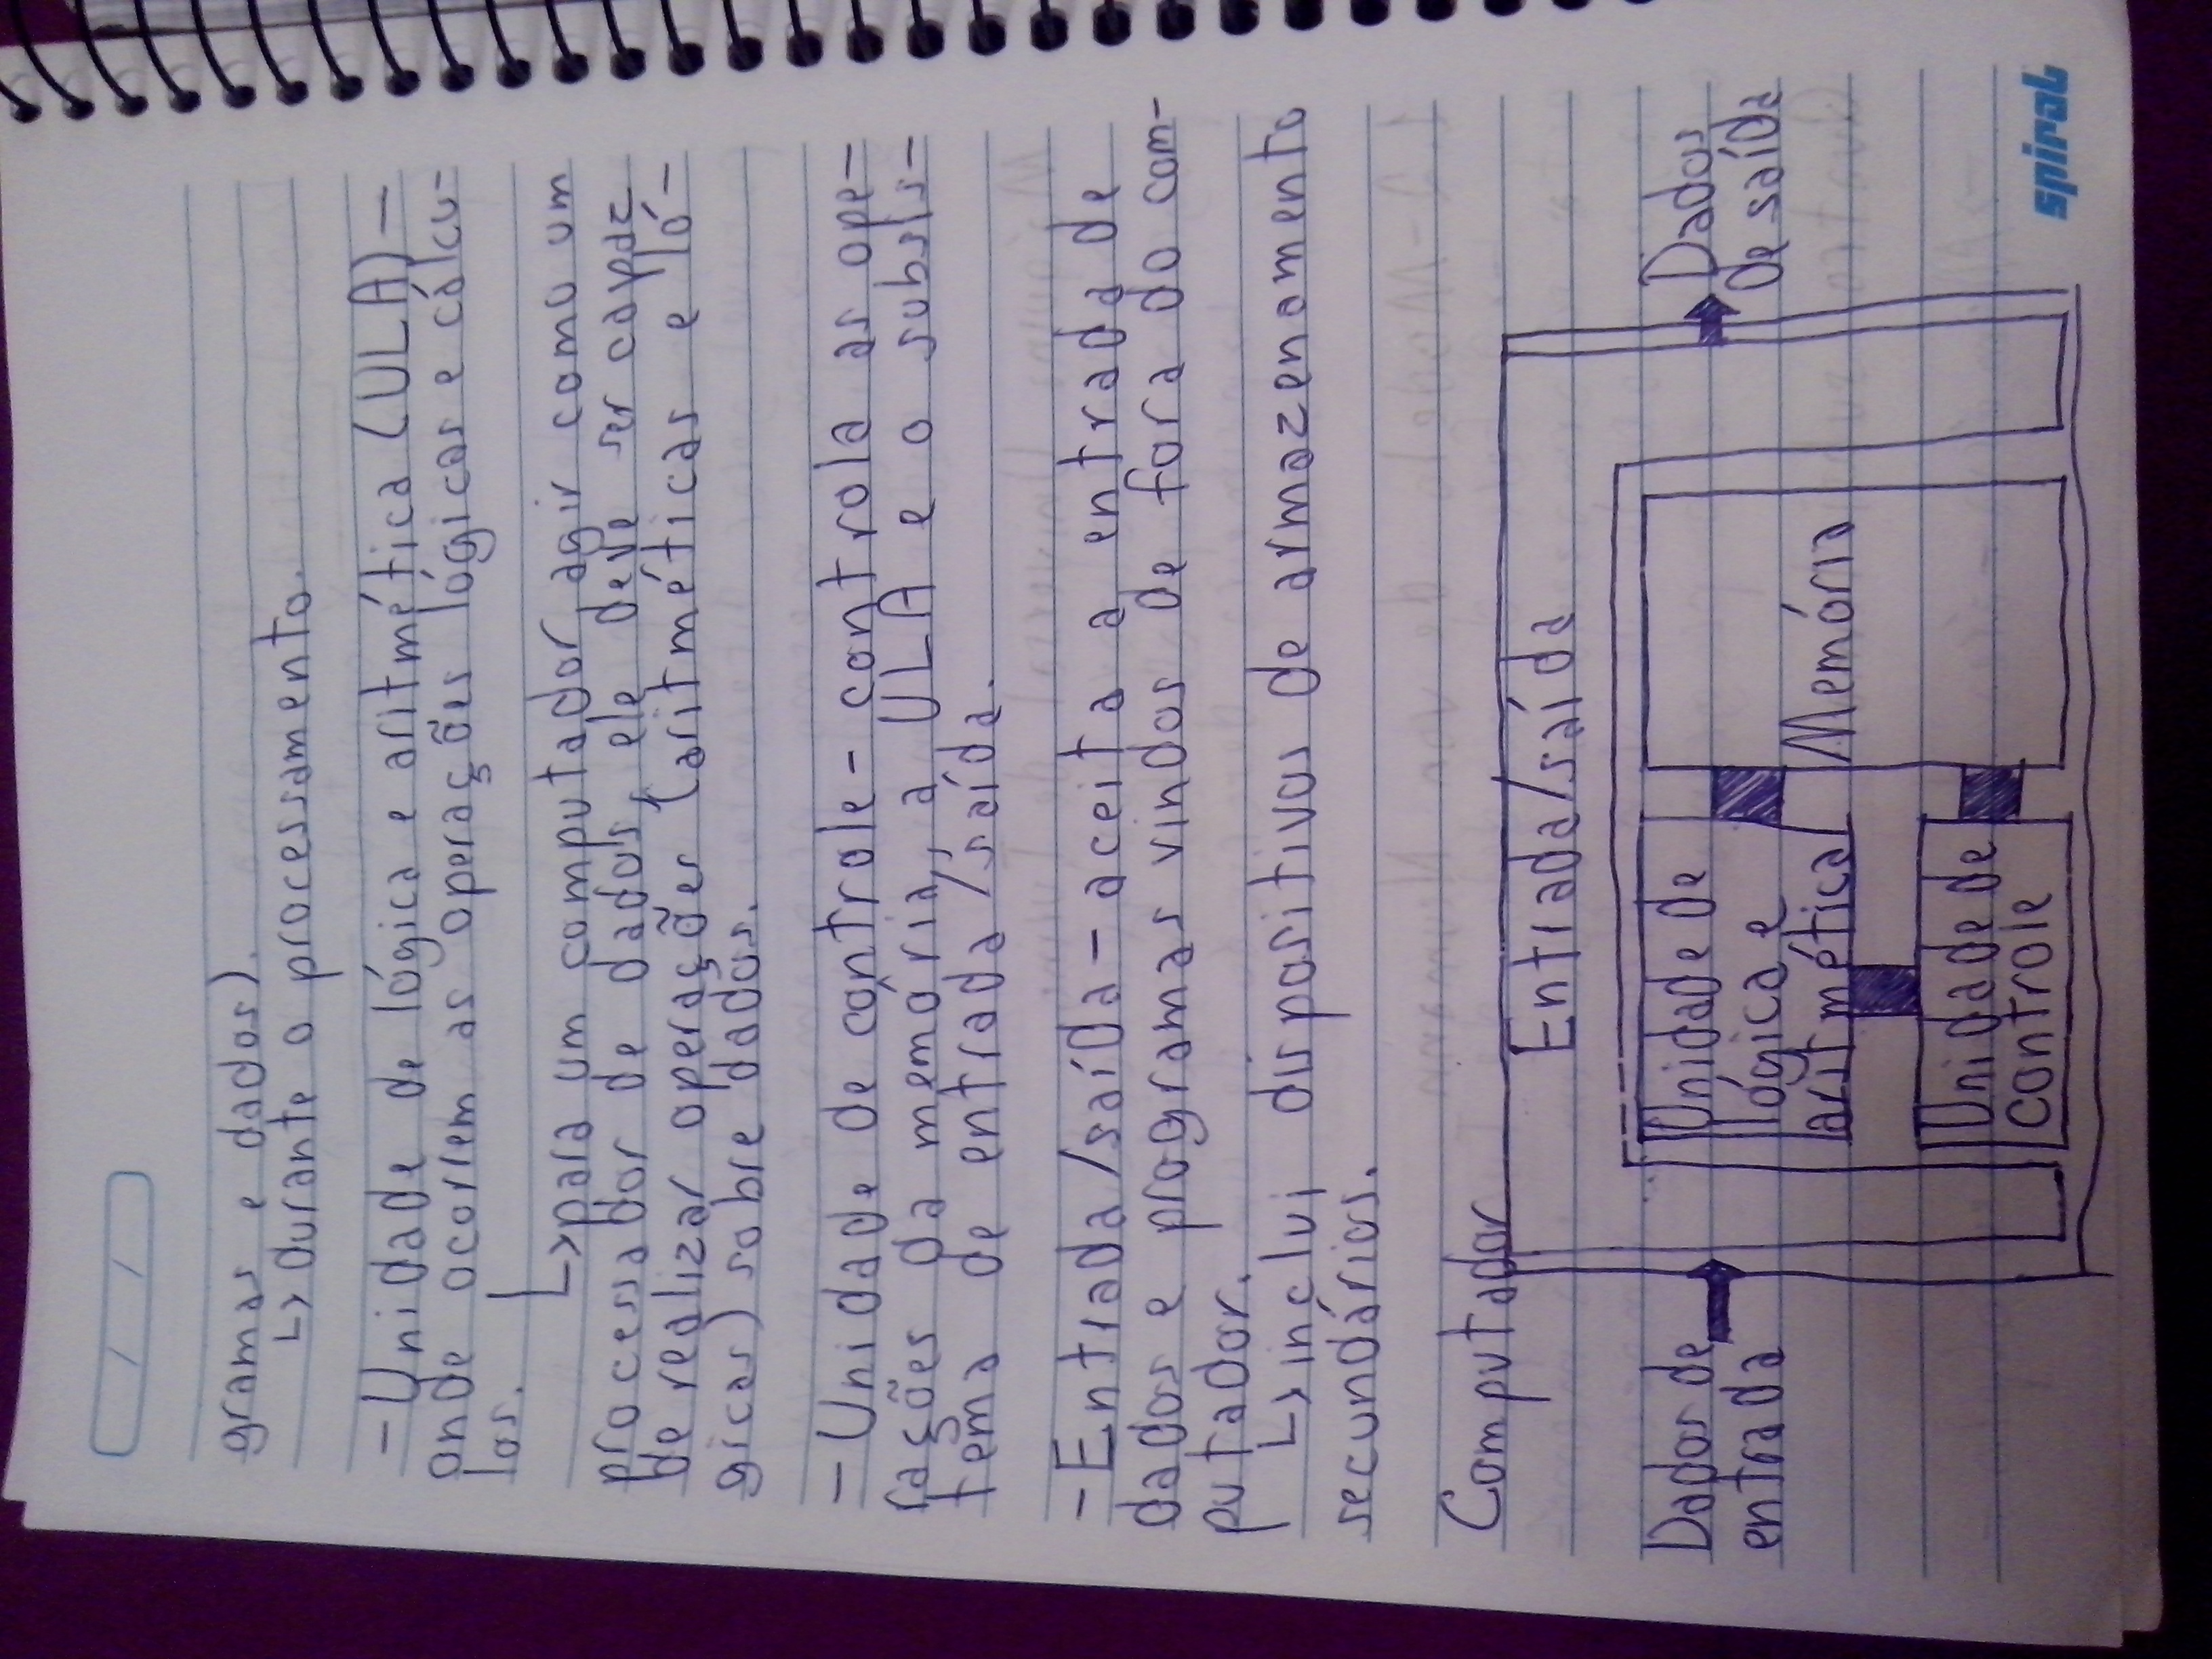 gramas e dados).
↳ durante o processamento.
- Unidade de lógica e aritmética (ULA) -
onde ocorrem as operações lógicas e cálcu-
los.
↳ para um computador agir como um
processador de dados, ele deve ser capaz
de realizar operações (aritméticas e ló-
gicas) sobre dados.
- Unidade de controle - controla as ope-
rações da memória, a ULA e o subsis-
tema de entrada/saída.
- Entrada/saída - aceita a entrada de
dados e programas vindos de fora do com-
putador.
↳ inclui dispositivos de armazenamento
secundários.
Computador
Entrada/saída
Dados de
entrada
Unidade de
lógica e
aritmética
Memória
Dados
de saída
Unidade de
controle
spiral